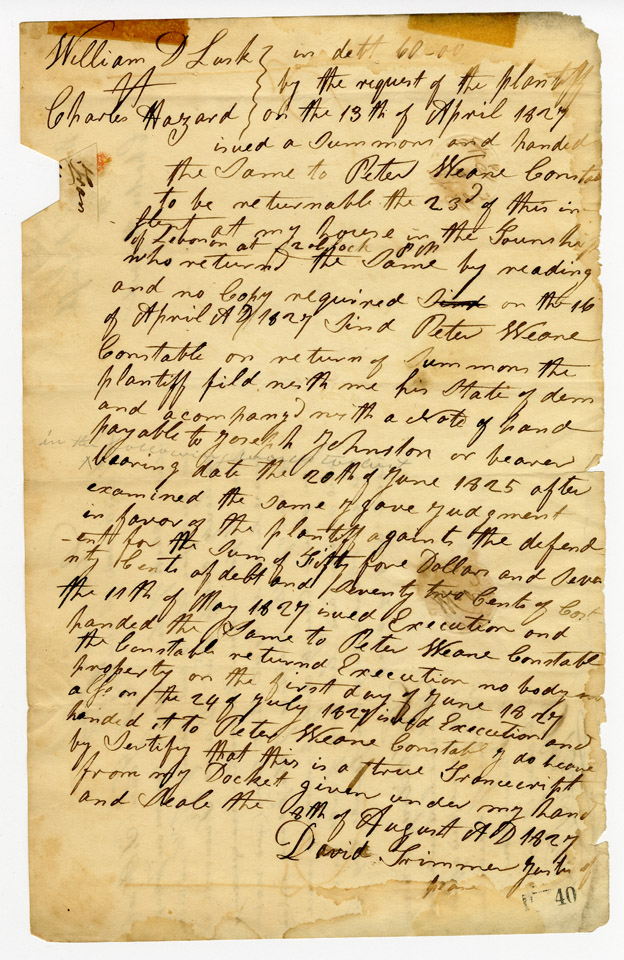 William D Lusk } in dett 60-00
vs } by the request of the plantiff
Charles Hazard } on the 13th of April 1827
isued a Summons and handed
the Same to Peter Weane Consta
to be returnable the 23d of this in
stent at my house in the Township
of Lebanon at 2 oclock P M
who returnd the Same by reading
and no Copy required Sind on the 16
of April AD 1827 Sind Peter Weane
Constable on return of Summons the
plantiff fild with me his State of dem
and acompanyd with a Note of hand
payable to Joseph Johnston or bearer
bearing date the 20th of June 1825 after
examined the Same I gave Judgment
in favor of the plantiff againts the defend
-ent for the Sum of Fifty five Dollars and Seve
nty Cents of debt and Seventy two Cents of Cost
the 11th of May 1827 isued Execution and
handed the Same to Peter Weane Constable
the Constable returnd Execution no body
property on the first day of June 1827
also on the 24 of July 1827 isued Execution and
handed it to Peter Weane Constabl I do heare
by Sertify that this is a true Transcript
from my Docket given under my hand
and Seale the 8th of August AD 1827
David Trimmer Justis of
peace
40